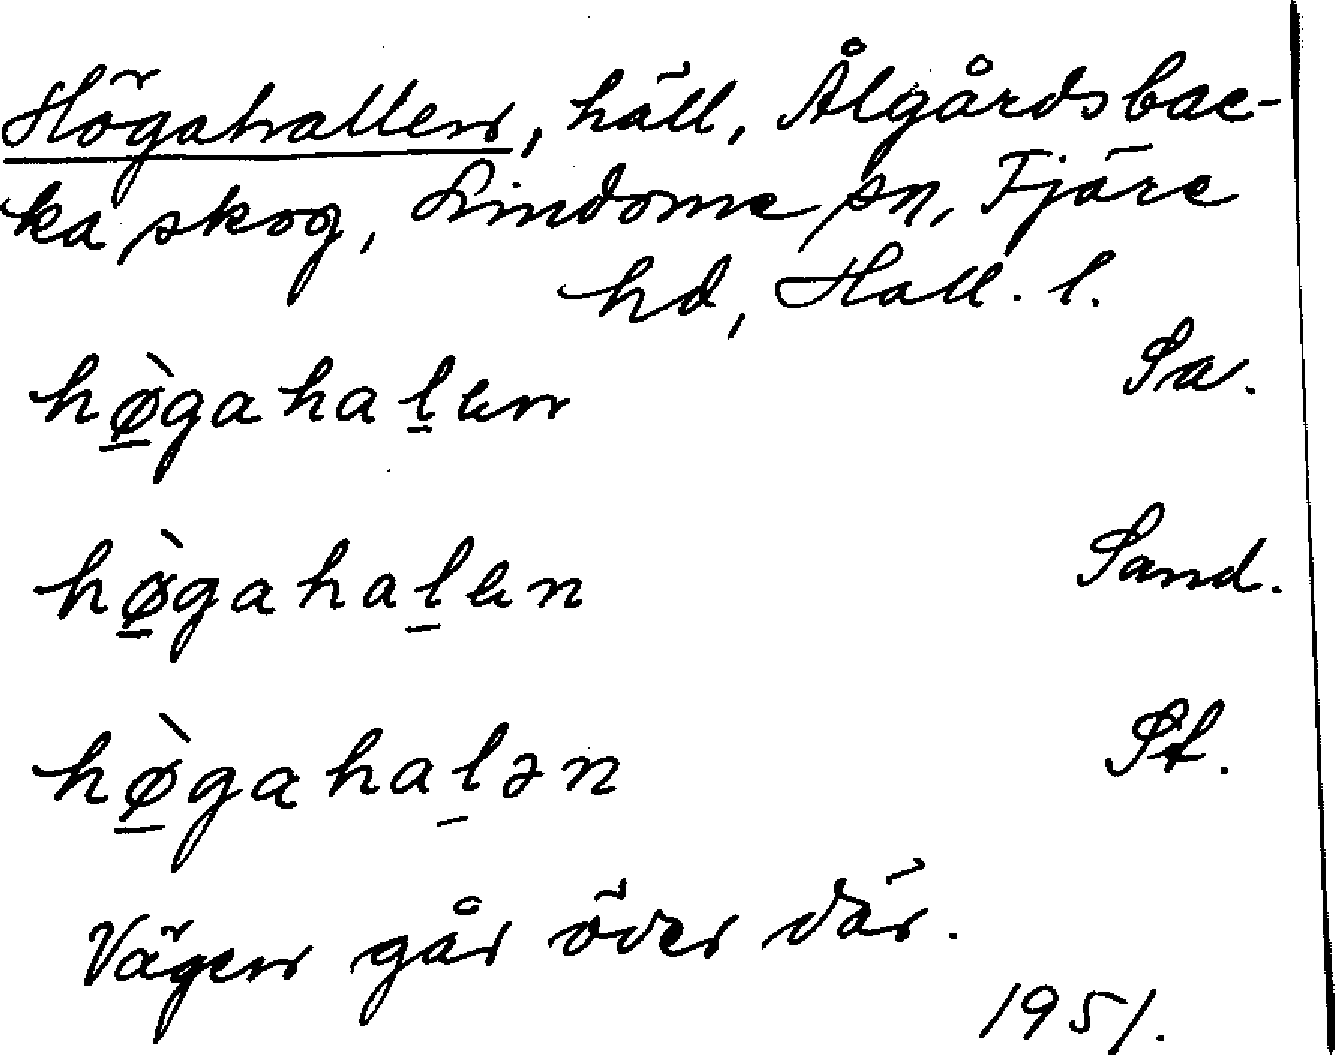 Högahallen, häll, Ålgårdsbac-
ka skog, Lindome sn, Fjäre
hd, Hall. l.
hø̀gahalen Sa.
hø̀gahalen Sand.
hø̀gahalən St.
Vägen går över där.
1951.